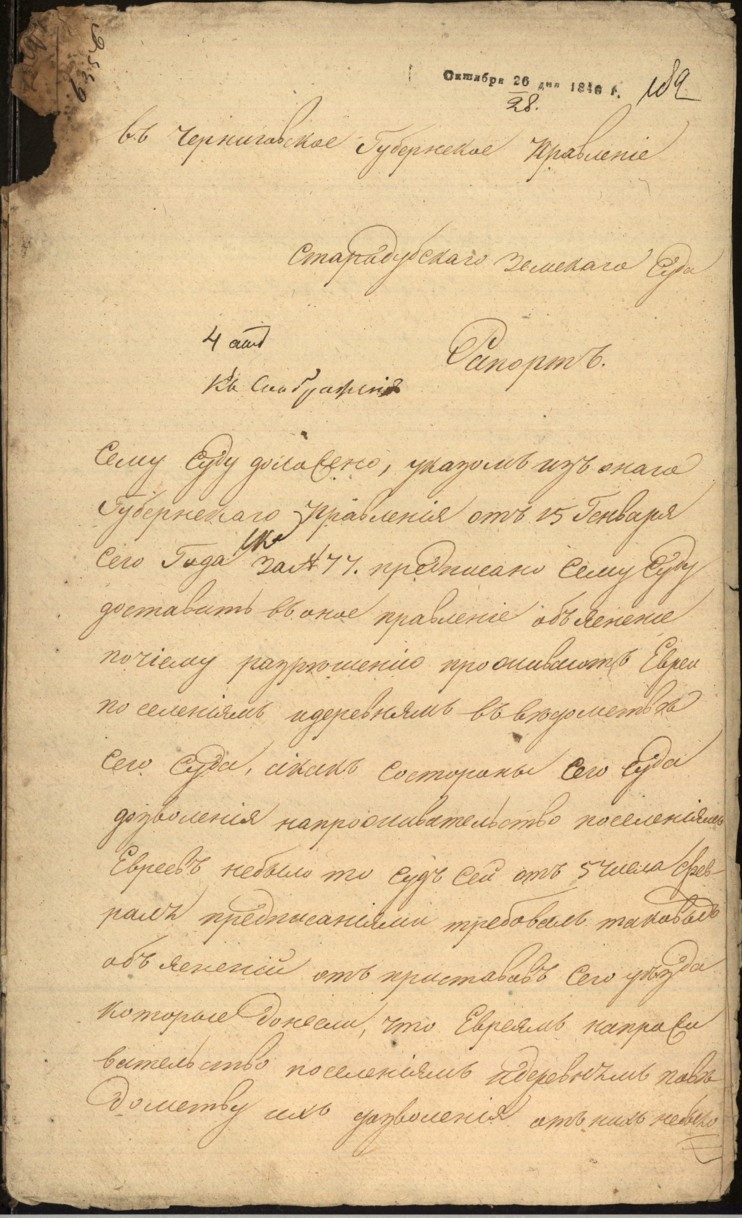 9539
Октября 26 дня 1846 г.
28.
182
Въ Черниговское Губернское Правленіе
Старадубскаго Земскаго Суда
Рапортъ.
4 отд
Къ Соображенію
Сему Суду доложено, указомъ изъ онаго
Губернскаго Правленія отъ 15 Генваря
сего Года за № 77. предписано Сему Суду
доставить въ оное правленіе объясненіе
почіему разрѣшенію проживаютъ Евреи
поселеніямъ идеревнямъ въ вѣдомствѣ
сего Суда, икакъ состороны сего Суда
дозволенія напроживательство поселеніямъ
Евреевъ небыло то Судъ сей отъ 5 числа Фев-
раля предписаніями требовалъ таковыхъ
объясненій отъ приставовъ сего уѣзда
которые донесли, что Евреямъ напрожи
вательство поселеніямъ идеревнямъ повѣ
домству ихъ дозволенія отъ нихъ небыло